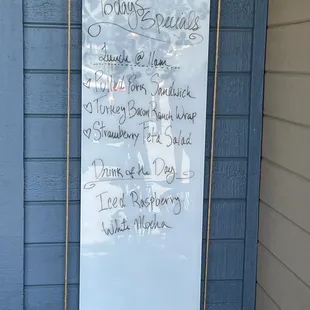 Todays Specials
Lunch @ 11am
Pulled Pork Sandwich
Turkey Bacon Ranch Wrap
Strawberry Feta Salad
Drink of the Day
Iced Raspberry
White Mocha